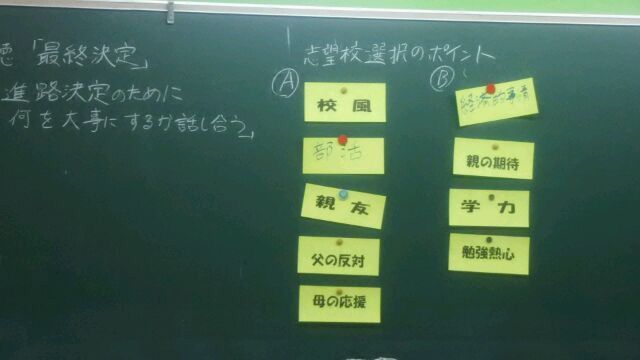 「最終決定」
進路決定のために
何を大事にするか話し合う」
志望校選択のポイント
Ⓐ
校風
部活
親友
父の反対
母の応援
Ⓑ
経済的事情
親の期待
学力
勉強熱心